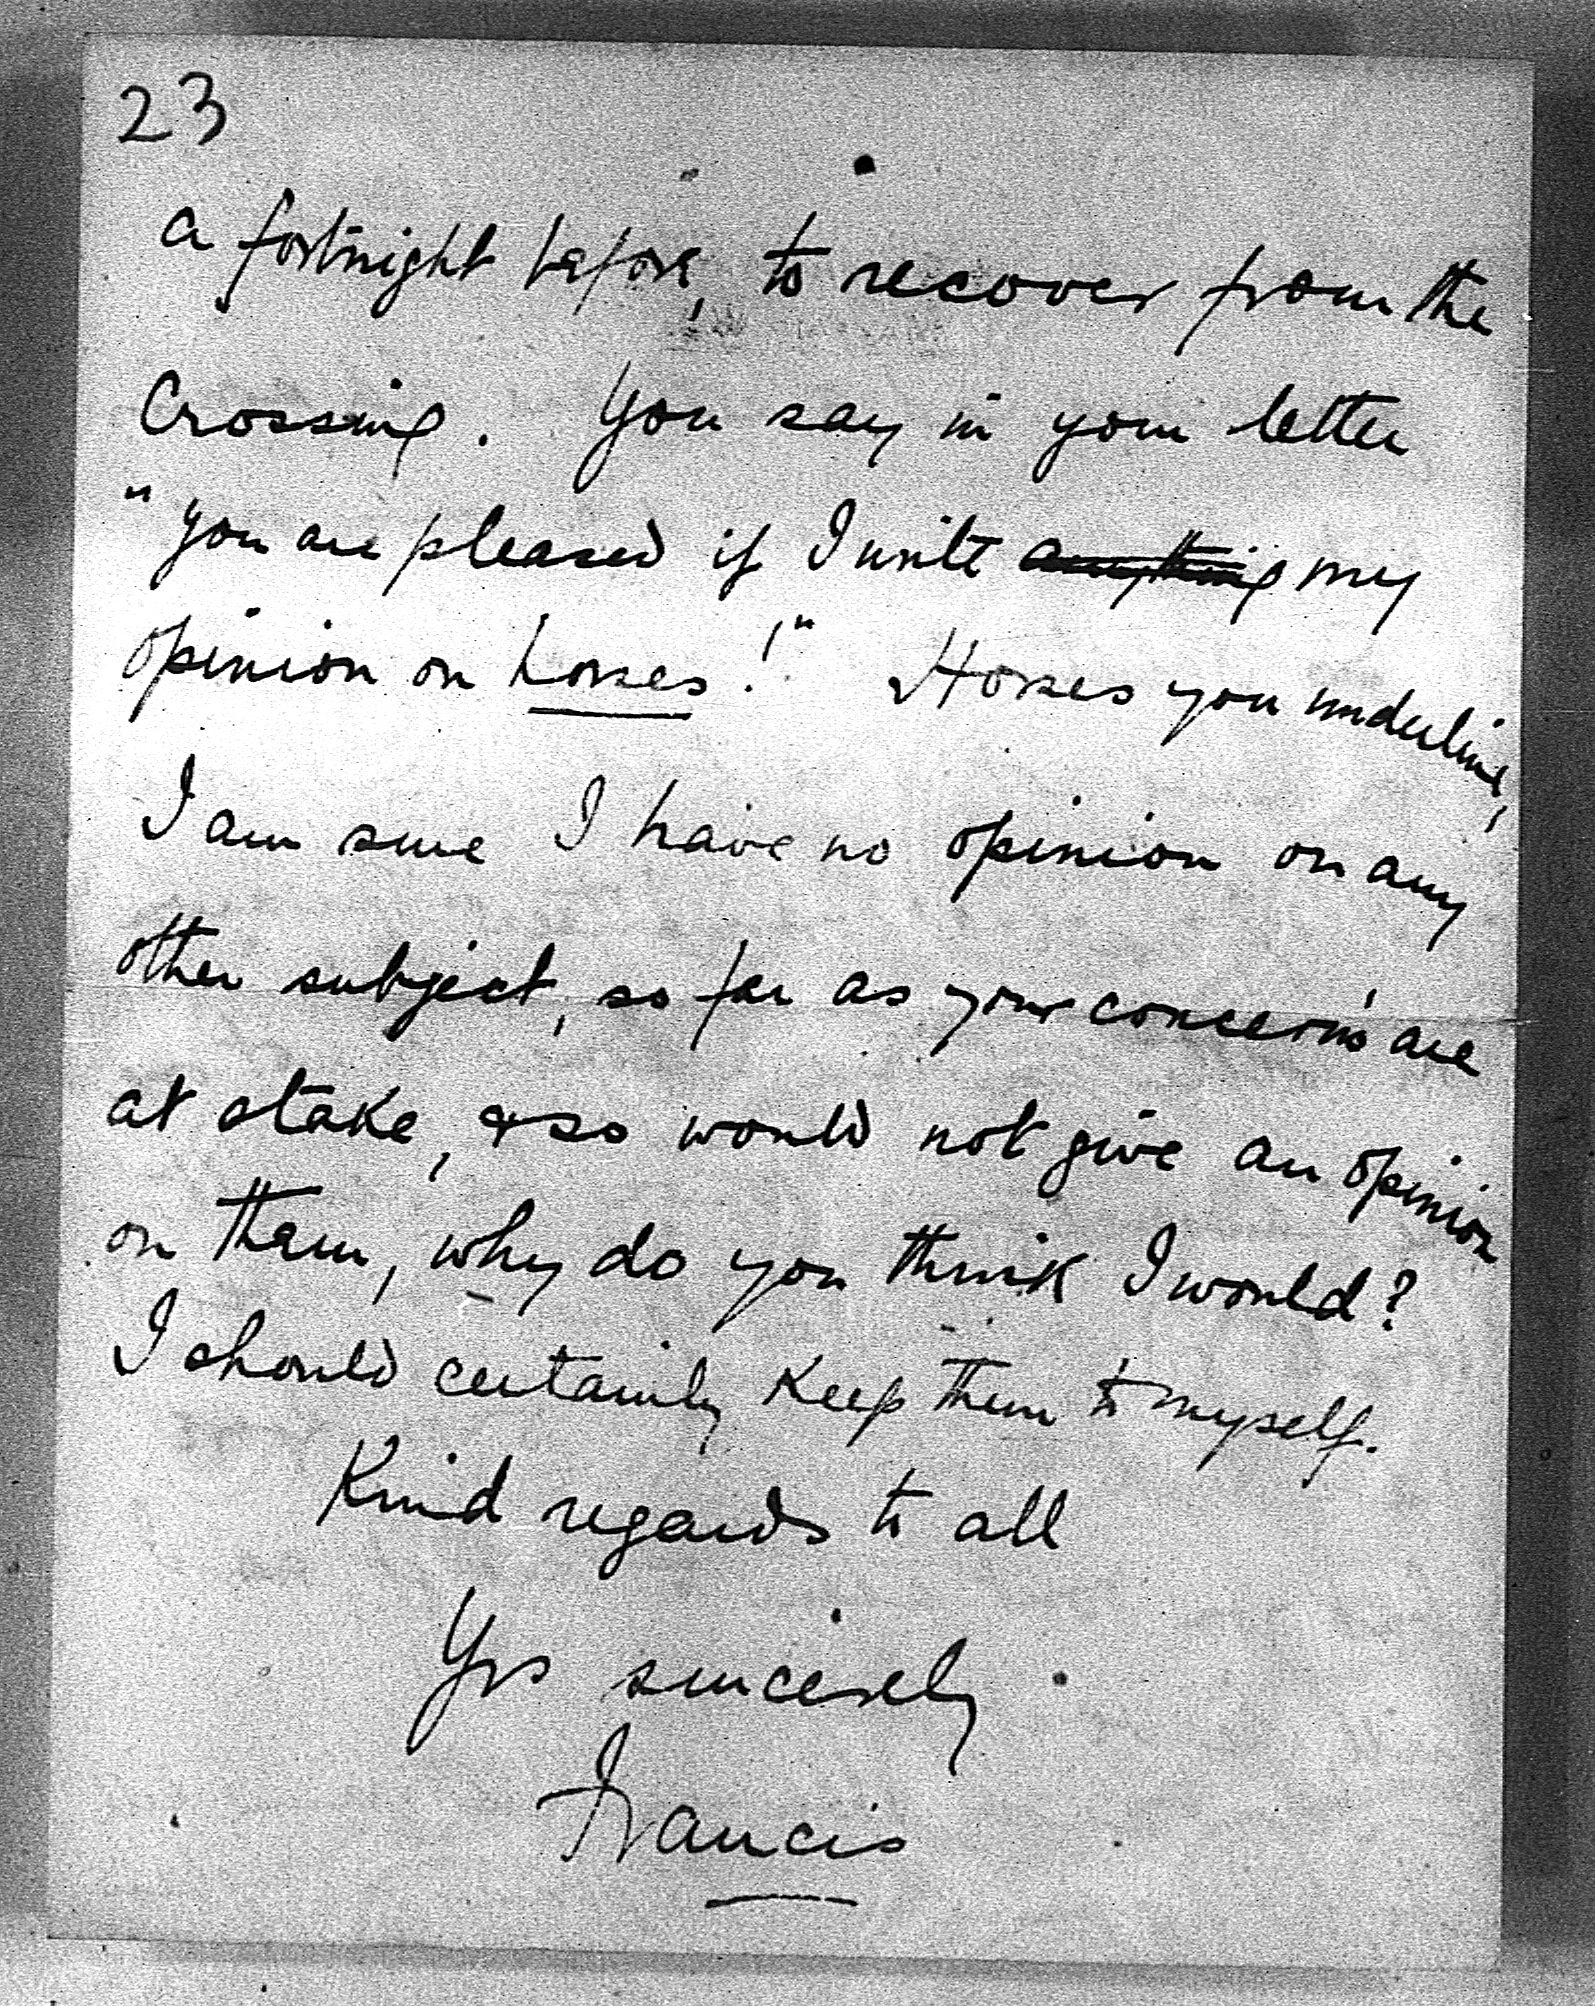 23
a fortnight before, to recover from the
Crossing. You say in your letter
"you are pleased if I write ~~anything~~ my
opinion on horses!" Horses you underline,
I am sure I have no opinion on any
other subject, so far as your concerns are
at stake, & so would not give an opinion
on them, why do you think I would?
I should certainly keep them to myself.
Kind regards to all
Yrs sincerely
Francis